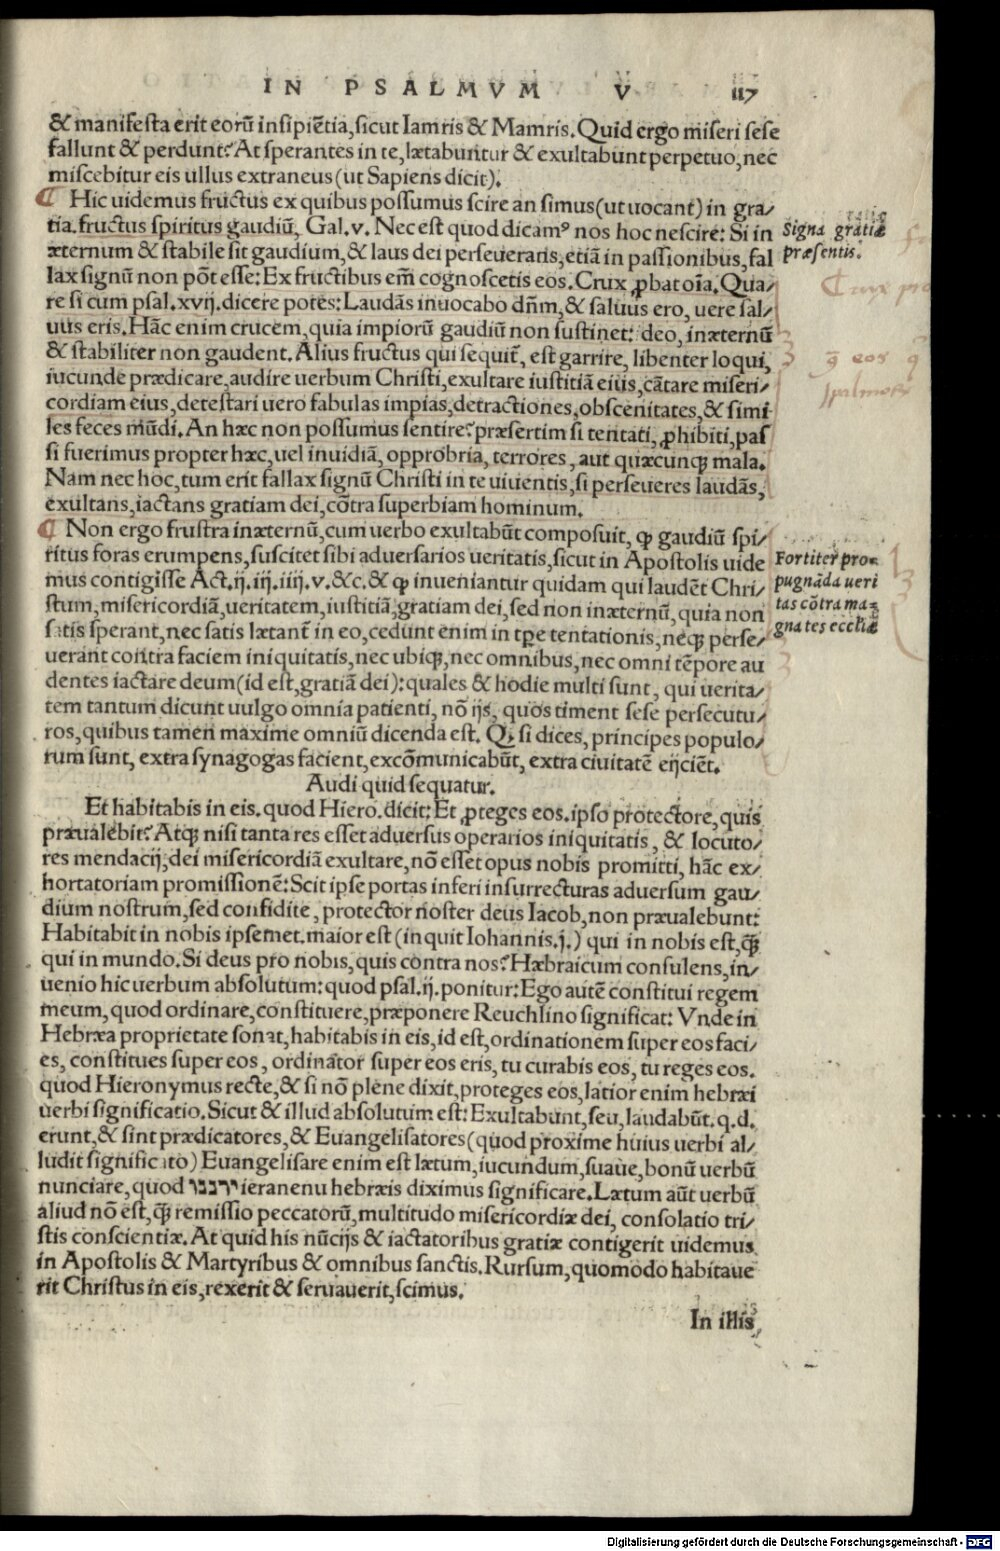 IN PSALMVM V 117
& manifesta erit eorū insipiētia, sicut Iamris & Mamris. Quid ergo miseri sese
fallunt & perdunt? At sperantes in te, lætabuntur & exultabunt perpetuo, nec
miscebitur eis ullus extraneus (ut Sapiens dicit).
¶ Hic uidemus fructus ex quibus possumus scire an simus (ut uocant) in gra/
tia. fructus spiritus gaudiū, Gal. v. Nec est quod dicamꝰ nos hoc nescire: Si in
æternum & stabile sit gaudium, & laus dei perseuerans, etiā in passionibus, fal
lax signū non pōt esse: Ex fructibus em̄ cognoscetis eos. Crux ꝓbat oīa. Qua/
re si cum psal. xvij. dicere potes: Laudās inuocabo dn̄m, & saluus ero, uere sal/
uus eris. Hāc enim crucem, quia impiorū gaudiū non sustinet: deo, inæternū
& stabiliter non gaudent. Alius fructus qui sequit̄, est garrire, libenter loqui,
iucunde prædicare, audire uerbum Christi, exultare iustitiā eius, cātare miseri/
cordiam eius, detestari uero fabulas impias, detractiones, obscenitates, & simi
les feces mūdi. An hæc non possumus sentire? præsertim si tentati, ꝓhibiti, pas
si fuerimus propter hæc, uel inuidiā, opprobria, terrores, aut quæcunqꝫ mala.
Nam nec hoc, tum erit fallax signū Christi in te uiuentis, si perseueres laudās,
exultans, iactans gratiam dei, cōtra superbiam hominum.
¶ Non ergo frustra inæternū, cum uerbo exultabūt composuit, ꝙ gaudiū spi/
ritus foras erumpens, suscitet sibi aduersarios ueritatis, sicut in Apostolis uide
mus contigisse Act. ij. iij. iiij. v. &c. & ꝙ inueniantur quidam qui laudēt Chri/
stum, misericordiā, ueritatem, iustitiā, gratiam dei, sed non inæternū, quia non
satis sperant, nec satis lætant̄ in eo, cedunt enim in tp̄e tentationis, neqꝫ perse/
uerant contra faciem iniquitatis, nec ubiqꝫ, nec omnibus, nec omni tēpore au
dentes iactare deum (id est, gratiā dei): quales & hodie multi sunt, qui uerita/
tem tantum dicunt uulgo omnia patienti, nō ijs, quos timent sese persecutu/
ros, quibus tamen maxime omniū dicenda est. Qꝫ si dices, principes populo/
rum sunt, extra synagogas facient, excōmunicabūt, extra ciuitatē eijciēt.
Audi quid sequatur.
Et habitabis in eis. quod Hiero. dicit: Et ꝓteges eos. ipso protectore, quis
præualebit? Atqꝫ nisi tanta res esset aduersus operarios iniquitatis, & locuto/
res mendacij, dei misericordiā exultare, nō esset opus nobis promitti, hāc ex/
hortatoriam promissionē: Scit ipse portas inferi insurrecturas aduersum gau/
dium nostrum, sed confidite, protector noster deus Iacob, non præualebunt:
Habitabit in nobis ipsemet. maior est (inquit Iohannis. j.) qui in nobis est, q̄ꝫ
qui in mundo. Si deus pro nobis, quis contra nos? Hæbraicum consulens, in/
uenio hic uerbum absolutum: quod psal. ij. ponitur: Ego autē constitui regem
meum, quod ordinare, constituere, præponere Reuchlino significat: Vnde in
Hebræa proprietate sonat, habitabis in eis, id est, ordinationem super eos faci/
es, constitues super eos, ordinator super eos eris, tu curabis eos, tu reges eos.
quod Hieronymus recte, & si nō plene dixit, proteges eos, latior enim hebræi
uerbi significatio. Sicut & illud absolutum est: Exultabunt, seu, laudabūt. q. d.
erunt, & sint prædicatores, & Euangelisatores (quod proxime huius uerbi al/
ludit significato) Euangelisare enim est lætum, iucundum, suaue, bonū uerbū
nunciare, quod ירננו ieranenu hebræis diximus significare. Lætum aūt uerbū
aliud nō est, q̄ꝫ remissio peccatorū, multitudo misericordiæ dei, consolatio tri/
stis conscientiæ. At quid his nūcijs & iactatoribus gratiæ contigerit uidemus
in Apostolis & Martyribus & omnibus sanctis. Rursum, quomodo habitaue
rit Christus in eis, rexerit & seruauerit, scimus.
In illis
Signa gratiæ
præsentis.
Crux pro
q̄ eos
psalmos
Fortiter pro=
pugnāda ueri
tas cōtra ma=
gnates eccliæ
Digitalisierung gefördert durch die Deutsche Forschungsgemeinschaft - DFG